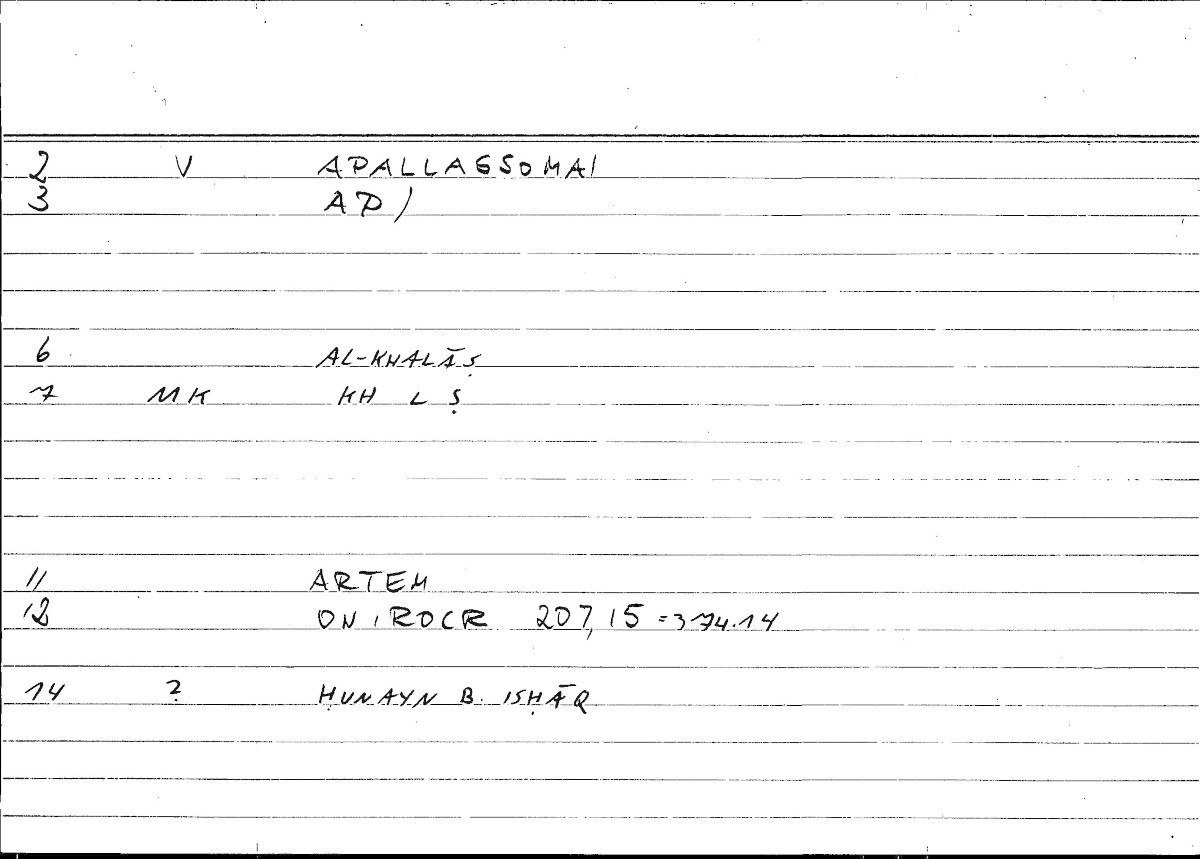 2 V APALLASSOMAI
3 AP/
6 AL-KHALĀṢ
7 MK KH L Ṣ
11 ARTEM
12 ONIROCR 207,15 = 374.14
14 ? ḤUNAYN B. ISḤĀQ